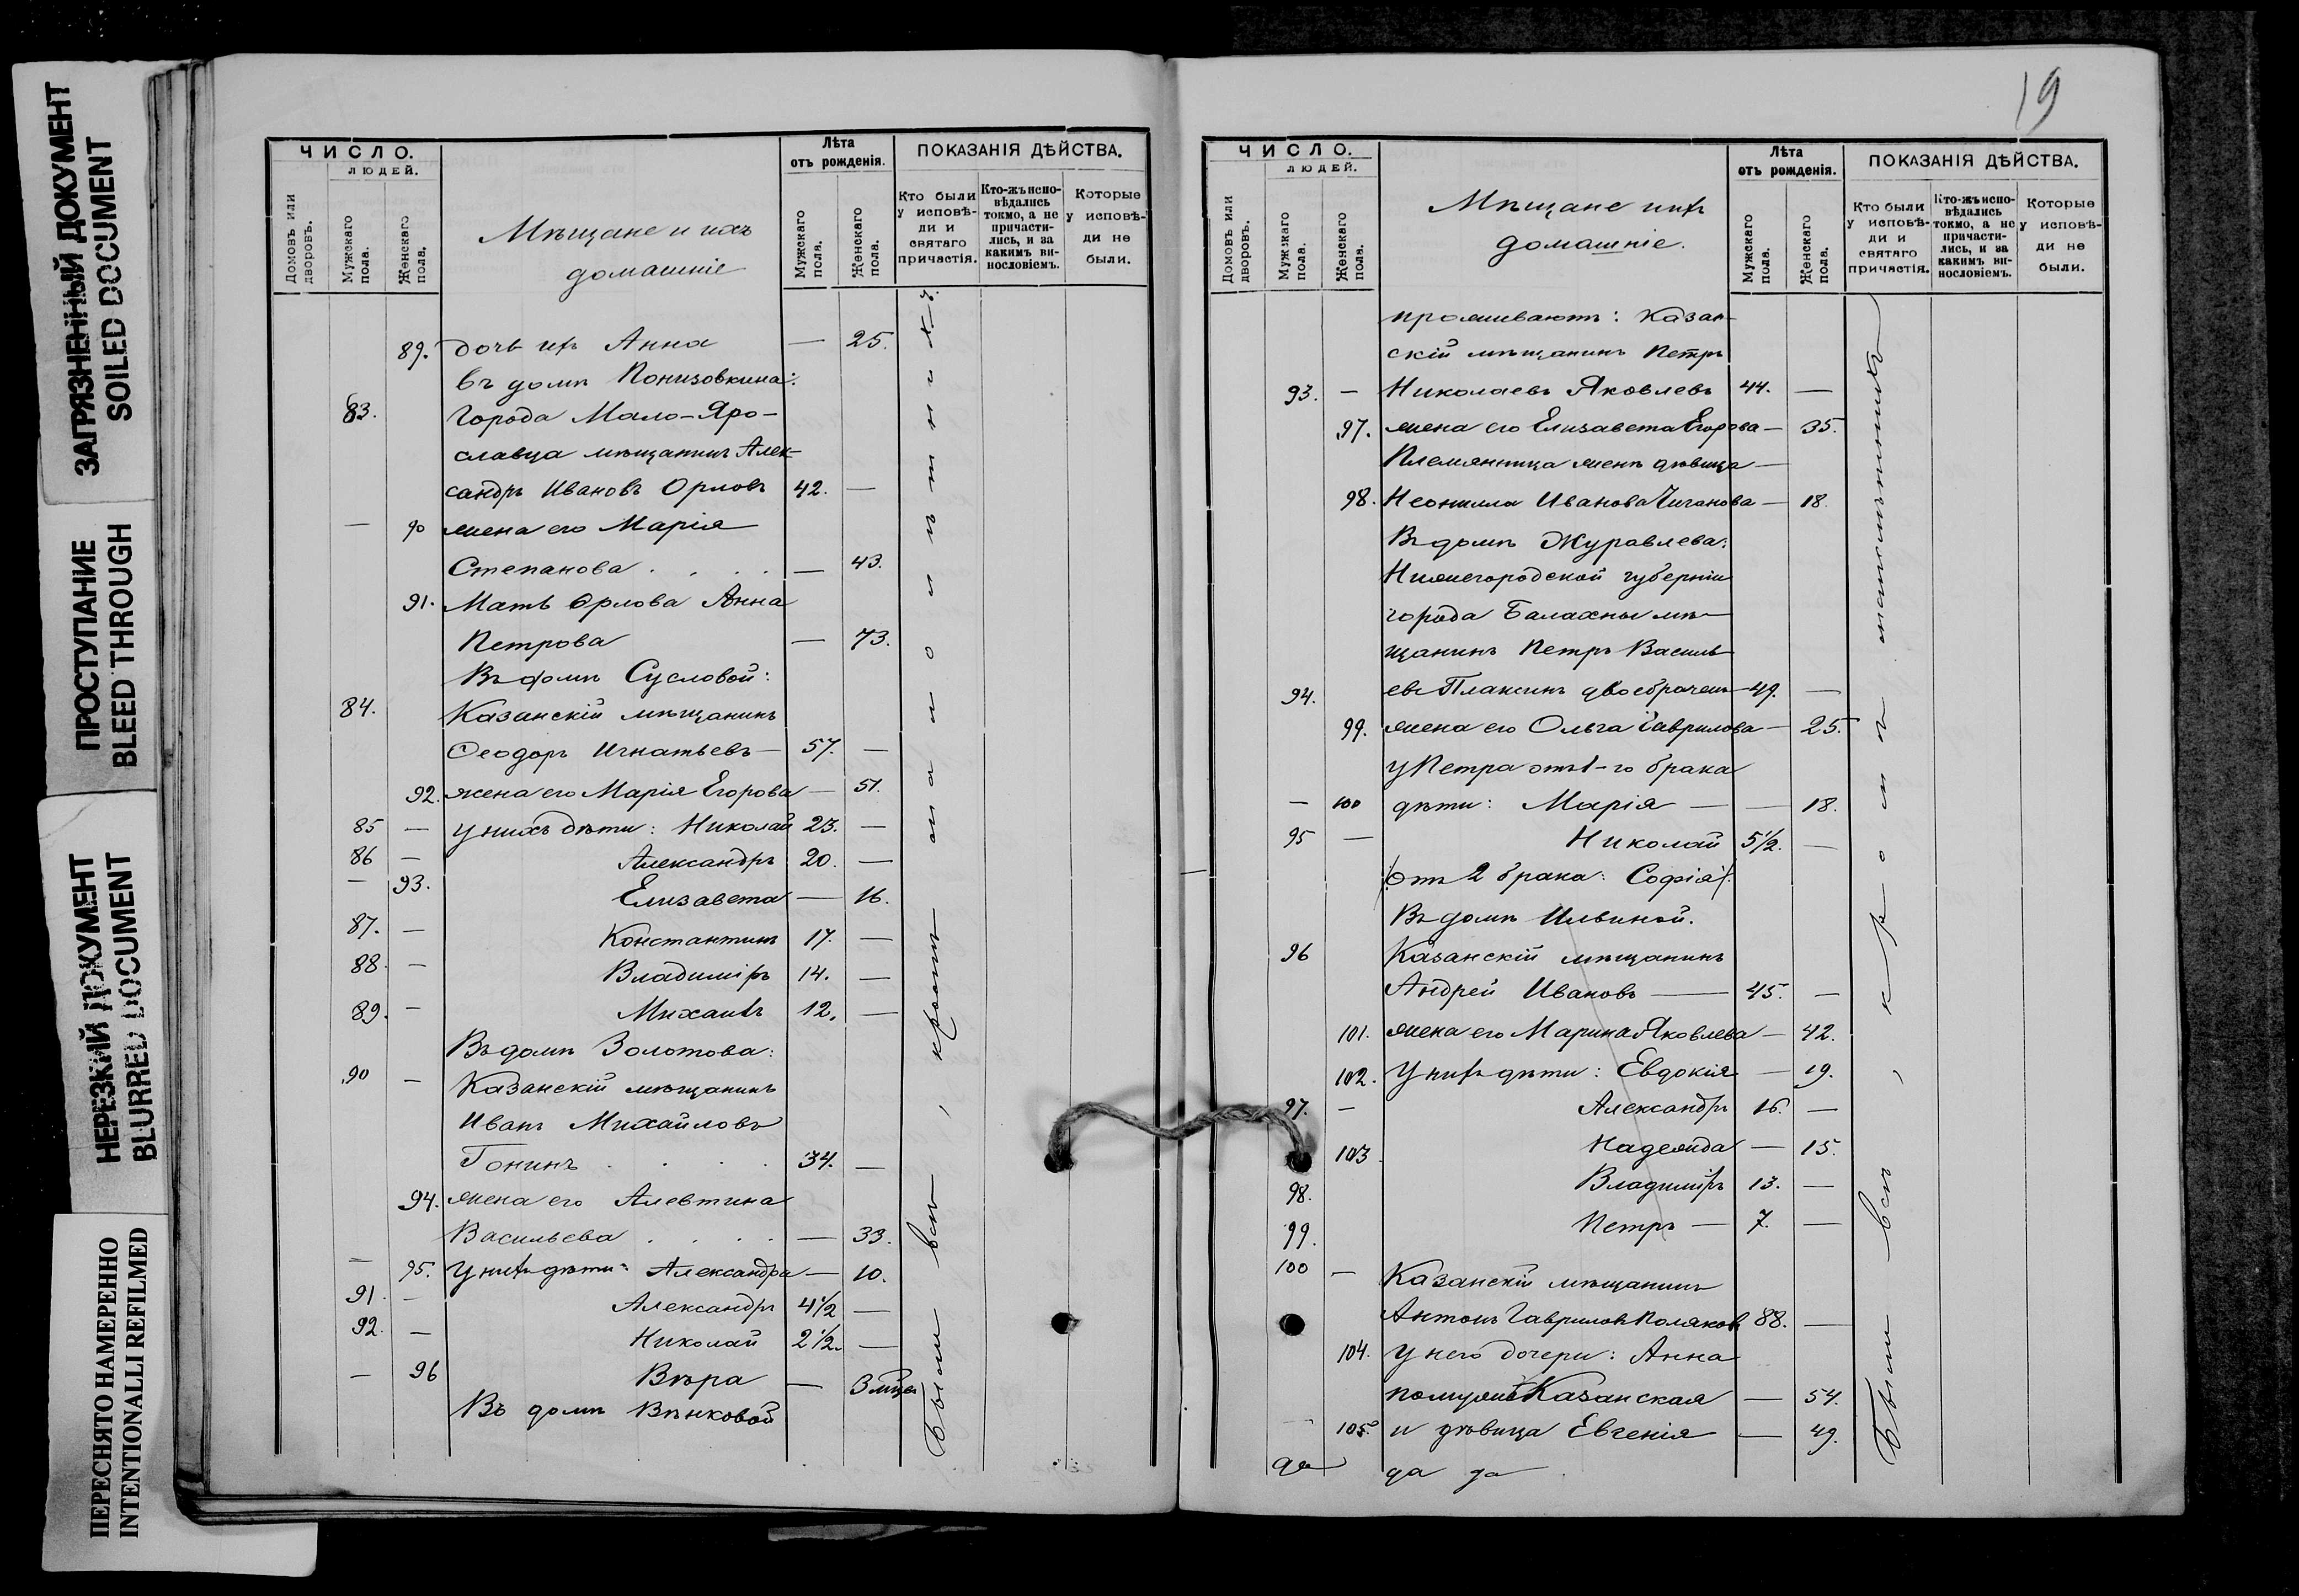 ЗАГРЯЗНЕННЫЙ ДОКУМЕНТ
SOILED DOCUMENT
ПРОСТУПАНИЕ
BLEED THROUGH
НЕРЕЗКИЙ ДОКУМЕНТ
BLURRED DOCUMENT
ПЕРЕСНЯТО НАМЕРЕННО
INTENTIONALLI REFILMED
ЧИСЛО.
ЛЮДЕЙ.
Домовъ или дворовъ.
Мужскаго пола.
Женскаго пола.
Мѣщане и ихъ
домашніе
Лѣта
отъ рожденія.
Мужскаго пола.
Женскаго пола.
ПОКАЗАНІЯ ДѢЙСТВА.
Кто были у исповѣди и святаго причастія.
Кто-жъ исповѣдались токмо, а не причастились, и за какимъ винословіемъ.
Которые у исповѣди не были.
89. дочь ихъ Анна — 25.
въ домѣ Понизовкина:
83. Города Мало-Яро-
славца мѣщанинъ Алек-
сандръ Ивановъ Орловъ 42. —
— 90 жена его Марія
Степанова . . . . — 43.
91. Мать Орлова Анна
Петрова — 73.
Въ домѣ Сусловой:
84. Казанскій мѣщанинъ
Ѳеодоръ Игнатьевъ — 57. —
92. жена его Марія Егорова — 51.
85 — у нихъ дѣти: Николай 23. —
86 — Александръ 20. —
— 93. Елизавета — 16.
87. — Константинъ 17. —
88. — Владиміръ 14. —
89. — Михаилъ 12. —
Въ домѣ Золотова:
90 — Казанскій мѣщанинъ
Иванъ Михайловъ
Гонинъ . . . . 34. —
94. жена его Алевтина
Васильева . . . . — 33.
— 95. У нихъ дѣти: Александра — 10.
91. — Александръ 4½ —
92. — Николай 2½. —
— 96 Вѣра — 3 мѣсяц
Въ домѣ Вѣнковой
Были всѣ, кромѣ
19
ЧИСЛО.
ЛЮДЕЙ.
Домовъ или дворовъ.
Мужскаго пола.
Женскаго пола.
Мѣщане ихъ
домашніе.
Лѣта
отъ рожденія.
Мужскаго пола.
Женскаго пола.
ПОКАЗАНІЯ ДѢЙСТВА.
Кто были у исповѣди и святаго причастія.
Кто-жъ исповѣдались токмо, а не причастились, и за какимъ винословіемъ.
Которые у исповѣди не были.
проживаютъ: Казан-
скій мѣщанинъ Петръ
93. — Николаевъ Яковлевъ 44. —
97. жена его Елизавета Егорова — 35.
Племянница жены дѣвица —
98. Неонилла Иванова Чиганова — 18.
Въ домѣ Журавлева:
Нижегородской губерніи
города Балахны мѣ-
щанинъ Петръ Василь-
94. евъ Плаксинъ двоебрачен — 49. —
99. жена его Ольга Гаврилова — 25.
у Петра отъ 1-го брака
— 100 дѣти: Марія — — 18.
95 — Николай 5½. —
(отъ 2 брака: Софія).
Въ домѣ Ильиной.
96 Казанскій мѣщанинъ
Андрей Ивановъ — 45. —
101. жена его Марина Яковлева — 42.
102. У нихъ дѣти: Евдокія — 19.
97. — Александръ 16. —
103. Надежда — 15.
98. Владиміръ 13. —
99. Петръ — 7. —
100 — Казанскій мѣщанинъ
Антонъ Гавриловъ Поляковъ 88. —
104. у него дочери: Анна
Казанская — 54.
105. и дѣвица Евгенія — 49.
да да да
Были всѣ, кромѣ